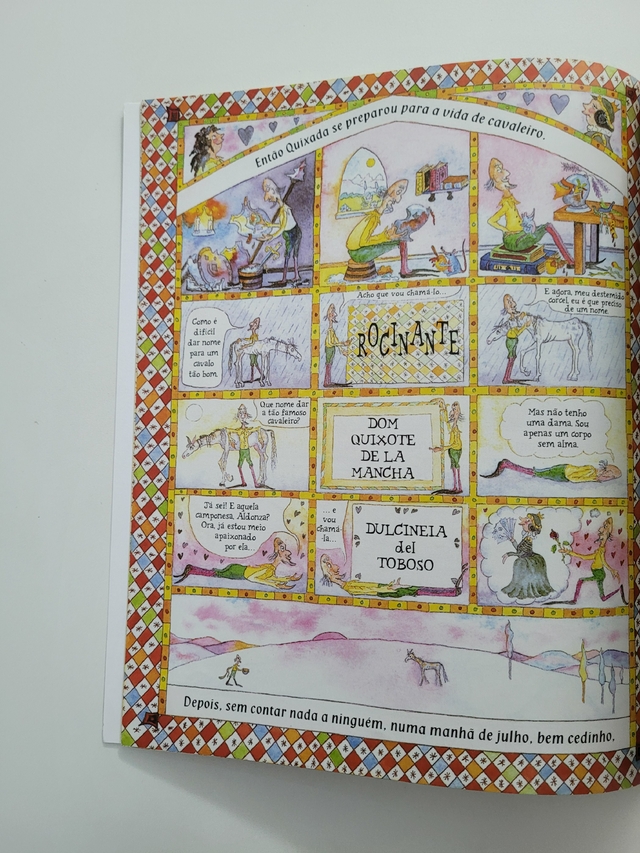 Então Quixada se preparou para a vida de cavaleiro.
Como é
difícil
dar nome
para um
cavalo
tão bom.
Acho que vou chamá-lo...
ROCINANTE
E agora, meu destemido
corcel, eu é que preciso
de um nome.
Que nome dar
a tão famoso
cavaleiro?
DOM
QUIXOTE
DE LA
MANCHA
Mas não tenho
uma dama. Sou
apenas um corpo
sem alma.
Já sei! E aquela
camponesa, Aldonza?
Ora, já estou meio
apaixonado
por ela...
... e
vou
chamá-
la...
DULCINEIA
del
TOBOSO
Depois, sem contar nada a ninguém, numa manhã de julho, bem cedinho,